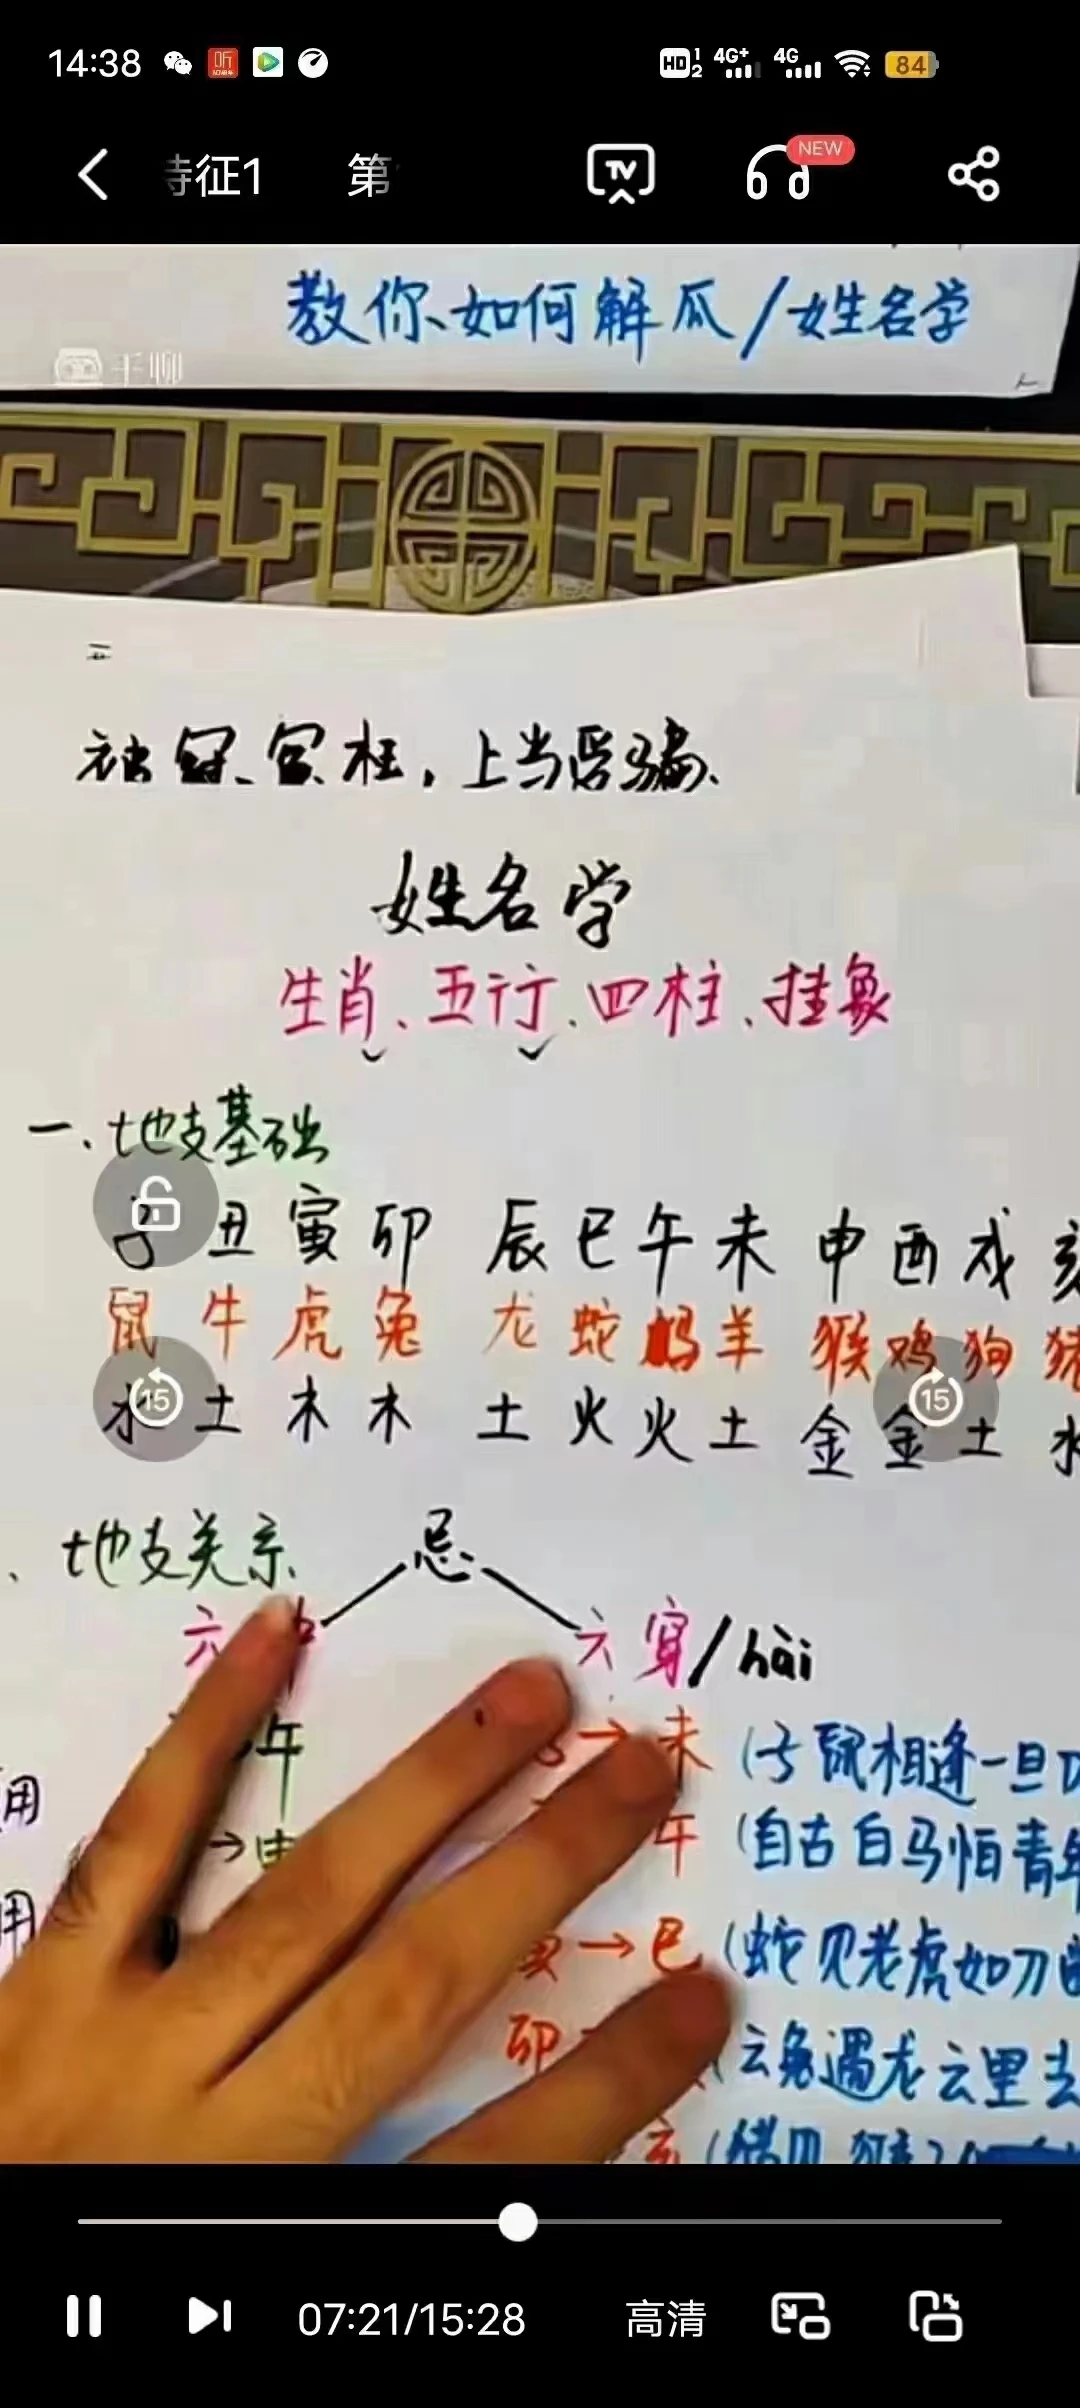 14:38 HD 1 2 4G+ 4G 84
特征1 第 TV NEW
教你如何解瓜/姓名学
上当受骗
姓名学
生肖、五行、四柱、挂象
一、地支基础
子 丑 寅 卯 辰 巳 午 未 申 酉 戌 亥
鼠 牛 虎 兔 龙 蛇 鸡 羊 猴 鸡 狗 猪
水 土 木 木 土 火 火 土 金 金 土 水
15 15
、地支关系 忌
六 六穿/hài
午 → 未 (子鼠相逢一旦
用 →申 午 (自古白马怕青年
用 寅→巳 (蛇见老虎如刀
卯 (云兔遇龙云里去
亥
07:21/15:28 高清